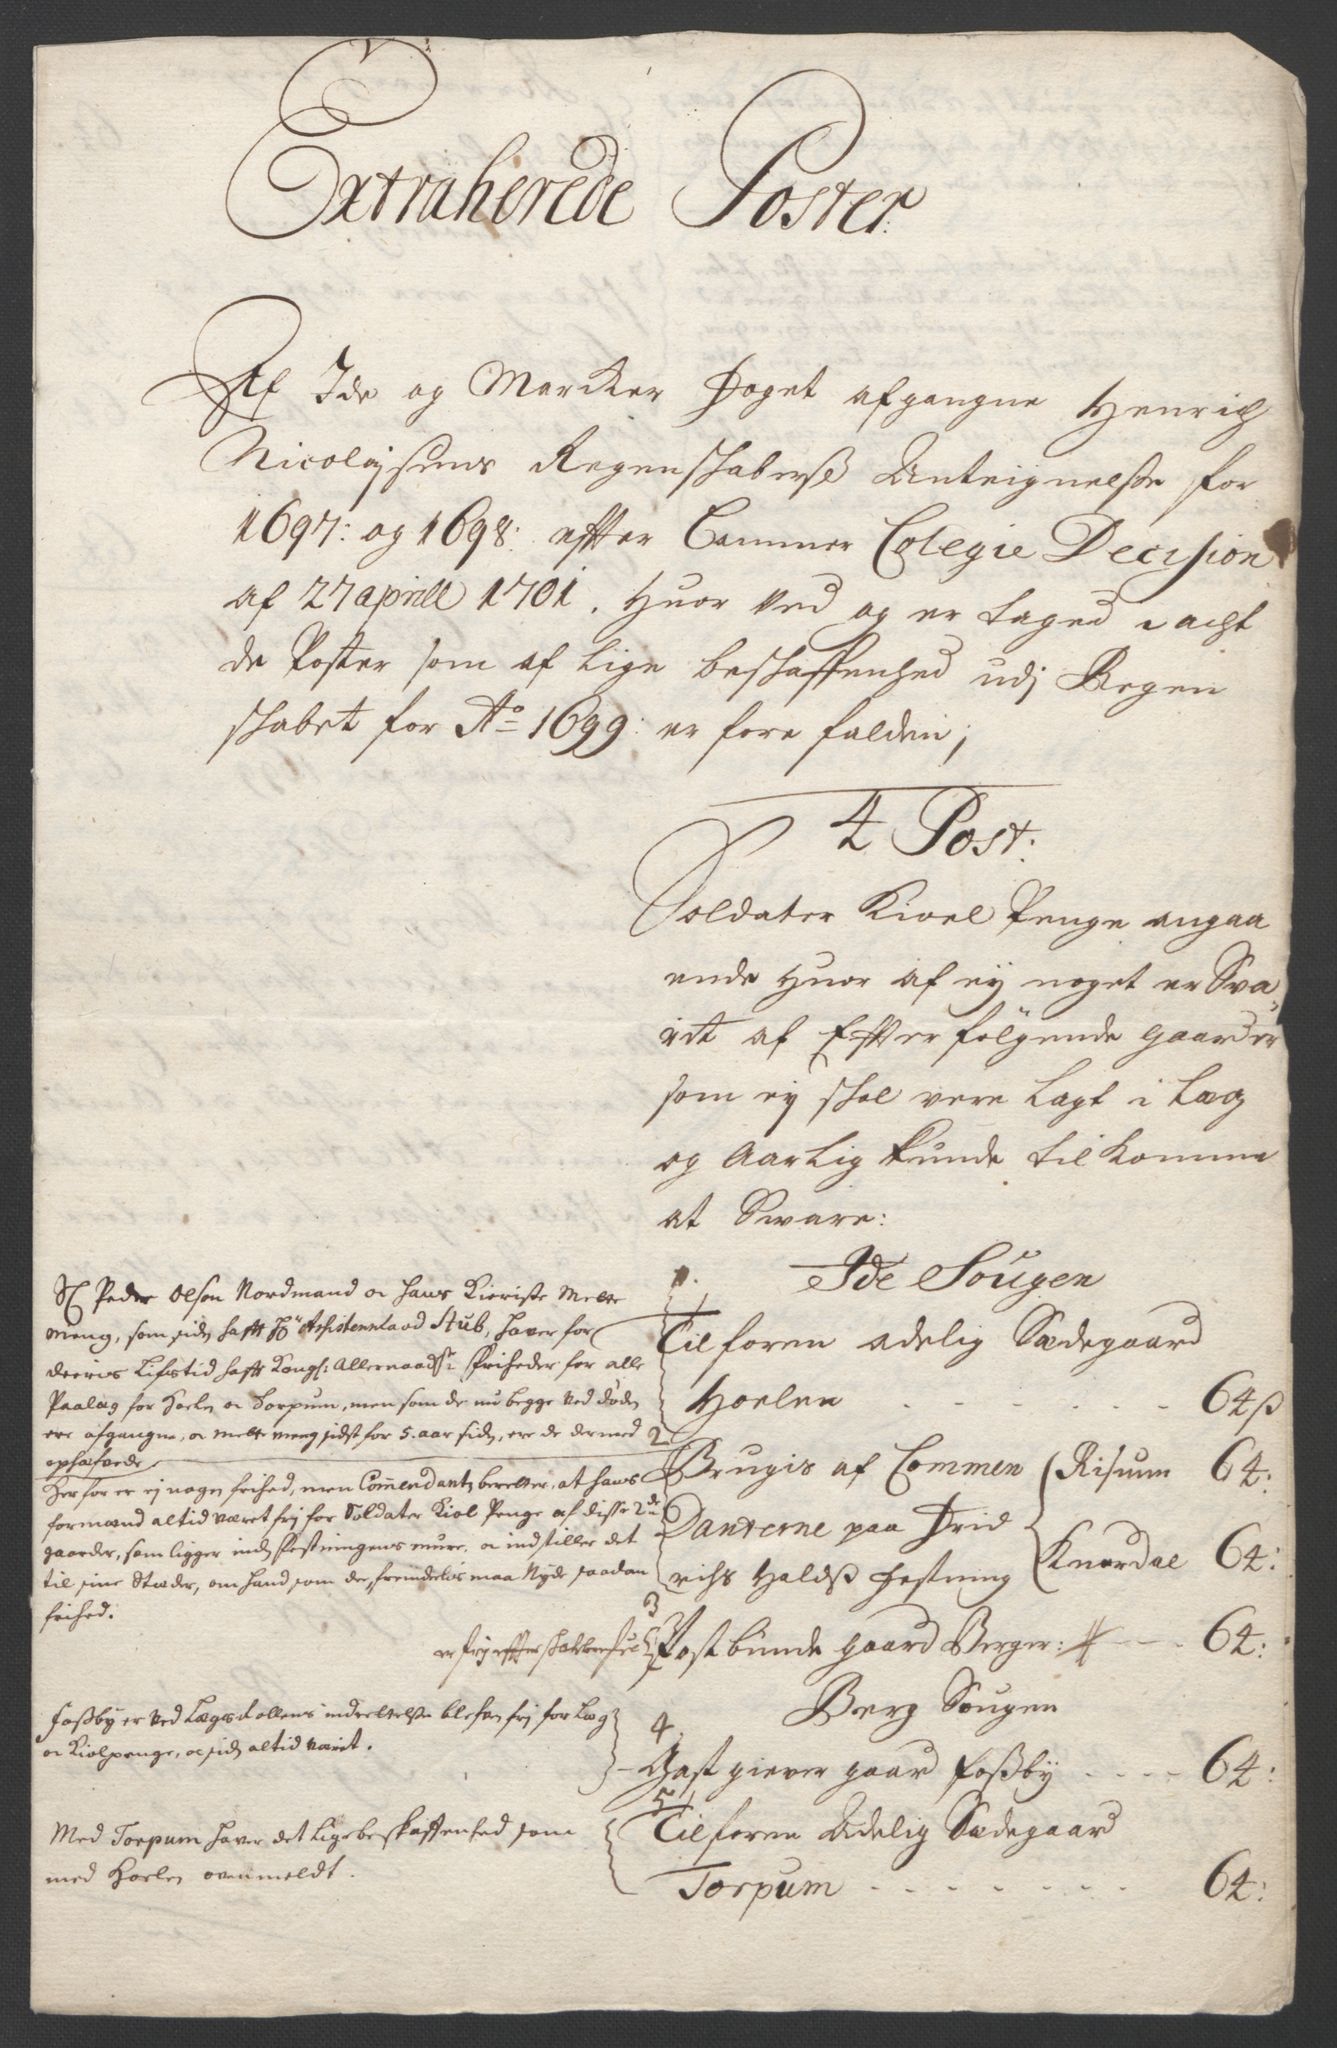 Extraherede Poster
Af Ide og Marcker Foget afgangne Henrich
Nicolajsens Regenskaberß Anteignelse for
1697: og 1698: effter Cammer Colegie Decision
af 27 aprill 1701. Huor ved og er taged i acht
de Poster som af lige beskaffenhed udj Regen
skabet for Ao 1699: er fore falden;
4 Post:
Soldater Kioel Penge angaa
ende Huor af ej noget er Sva,
ret af Effterfölgende gaarder
som ej skal vere Lagt i Læg
og Aarlig kunde til komme
at Svare:
Ide Sougen
1. Tilforen adelig Sædegaard
Hoelen - - - - 64ß
2. Brugis af Commen Risum 64:
Danterne paa Frid
richs Haldß festning Knardal 64:
3 Postbunde gaard Berger: - - 64:
Berg Sougen
4. Gast giever gaard foßby - - - - 64:
5. Tilforen Adelig Sædegaard
Torpum - - - - - - - 64:
Sl Peder Olson Nordmand oc hans Kieriste Mette
Meng, som siden hafft Hr Assistentzraad Stub, haver for
deeris Lifstid hafft Kongl: Allernaadste Friheder for alle
Paalæg for Horlen oc Torpum, men som de nu begge ved döden
ere afgangne, oc Mette Meng sidst for 5. aar siden, ere de dermed
ophæfvede
Her for er ej nogen frihed, men Commendanten beretter, at hans
formænd altid været frj for Soldater Kiol Penge af disse 2de
gaarder, som ligger inden Festningens mure, oc indstiller det
til sine Stæder, om hand som de, fremdelis maa Nyde saadan
frihed.
er frj effter skatte
Foßby er ved Lægs Rollens indrettelse blefven frj for Læg
oc Kiolpenge, oc siden altid været.
Med Torpum haver det lige beskaffenhed som
med Horlen ovenmeldt.